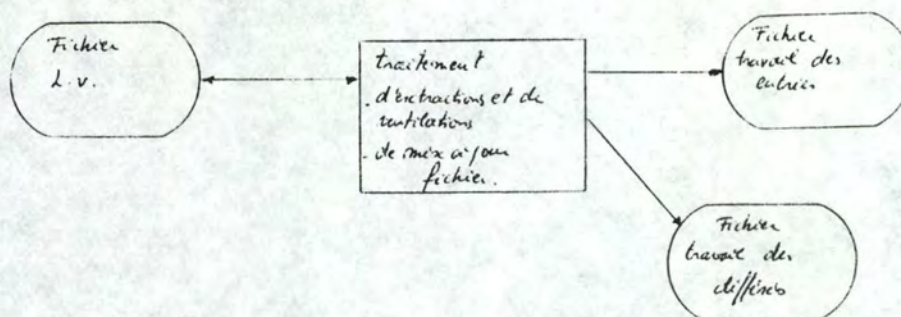 Fichier
L.v.
traitement
. d'extractions et de
ventilations
- de mise à jour
fichier.
Fichier
travail des
entrées
Fichier
travail des
différés